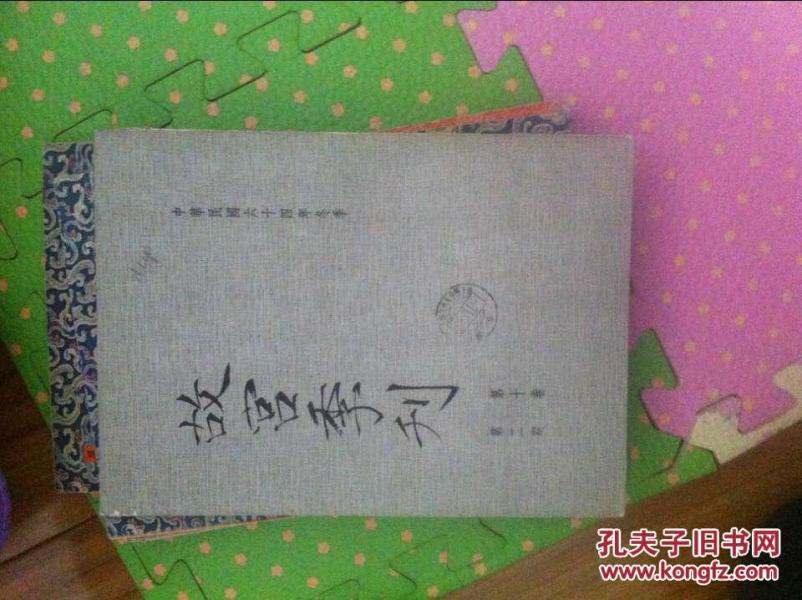 中華民國六十四年冬季
故宮季刊
第十卷
第二期
孔夫子旧书网
www.kongfz.com